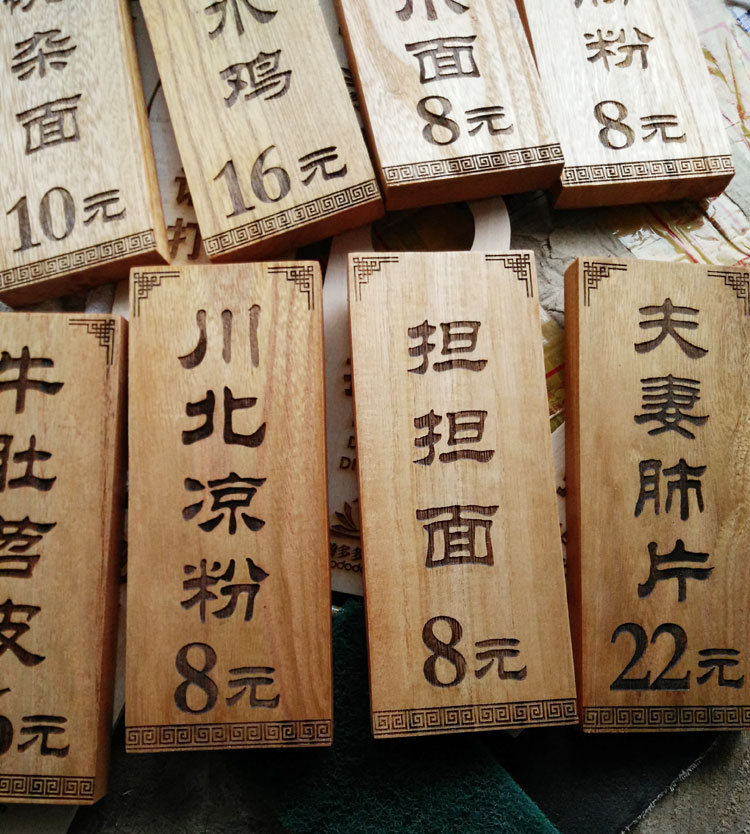 杂面
10元
水鸡
16元
面
8元
粉
8元
牛肚苕皮
元
川北凉粉
8元
担担面
8元
夫妻肺片
22元